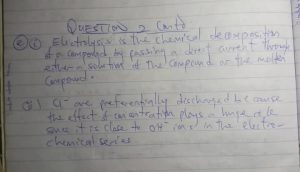 QUESTION 2 Contd
(e)(i) Electrolysis is the chemical decomposition
of a compound by passing a direct current through
either a solution of the compound or the molten
compound.
(ii) Cl⁻ are preferentially discharged because
the effect of concentration plays a huge role
since it is close to OH⁻ ions in the electro-
chemical series